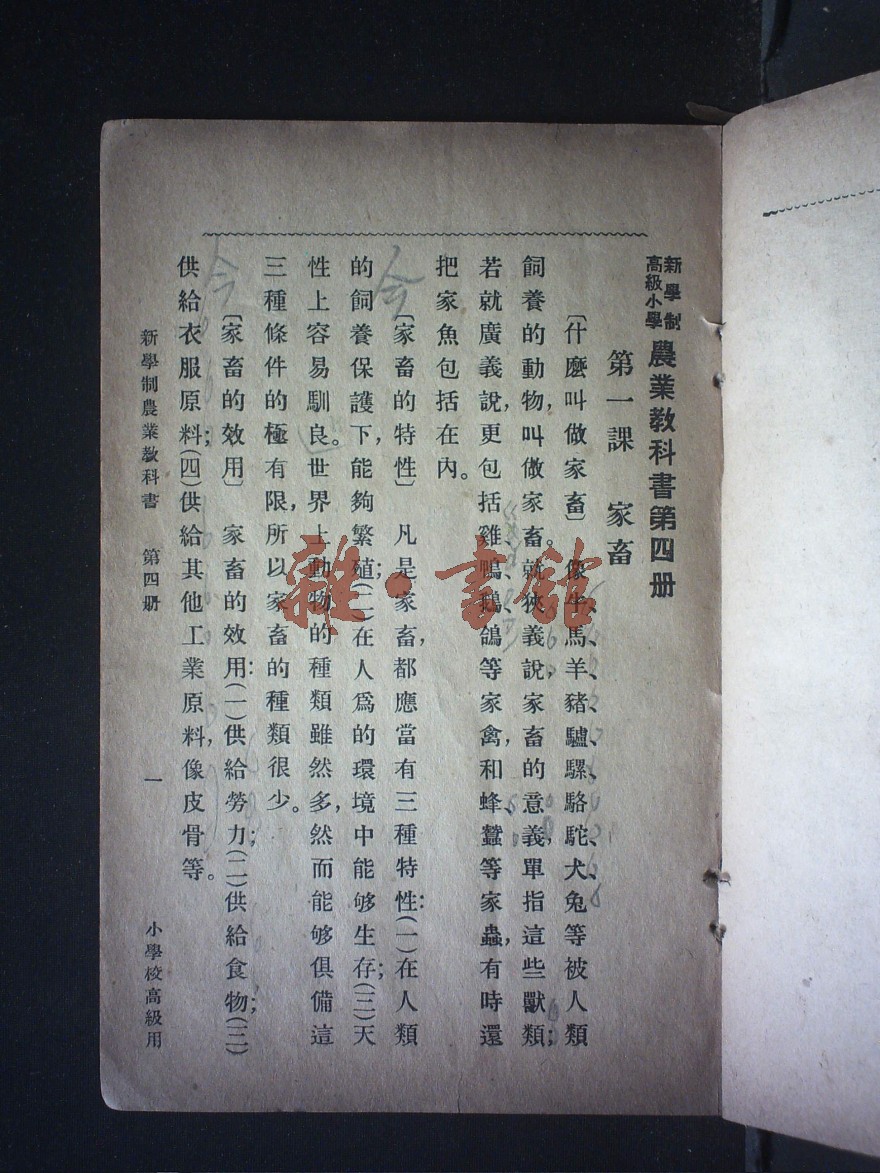 新學制
高級小學
農業教科書第四册
第一課　家畜
〔什麼叫做家畜〕　像牛、馬、羊、豬、驢、騾、駱駝、犬、兔等被人類
飼養的動物，叫做家畜。就狹義說，家畜的意義，單指這些獸類；
若就廣義說，更包括雞、鴨、鵝、鴿等家禽，和蜂、蠶等家蟲，有時還
把家魚包括在內。
〔家畜的特性〕　凡是家畜，都應當有三種特性：(一)在人類
的飼養保護下，能夠繁殖；(二)在人爲的環境中能够生存；(三)天
性上容易馴良。世界上動物的種類雖然多，然而能够俱備這
三種條件的極有限，所以家畜的種類很少。
〔家畜的效用〕　家畜的效用：(一)供給勞力；(二)供給食物；(三)
供給衣服原料；(四)供給其他工業原料，像皮骨等。
新學制農業教科書　第四册　一　小學校高級用
今
今
雜·書館